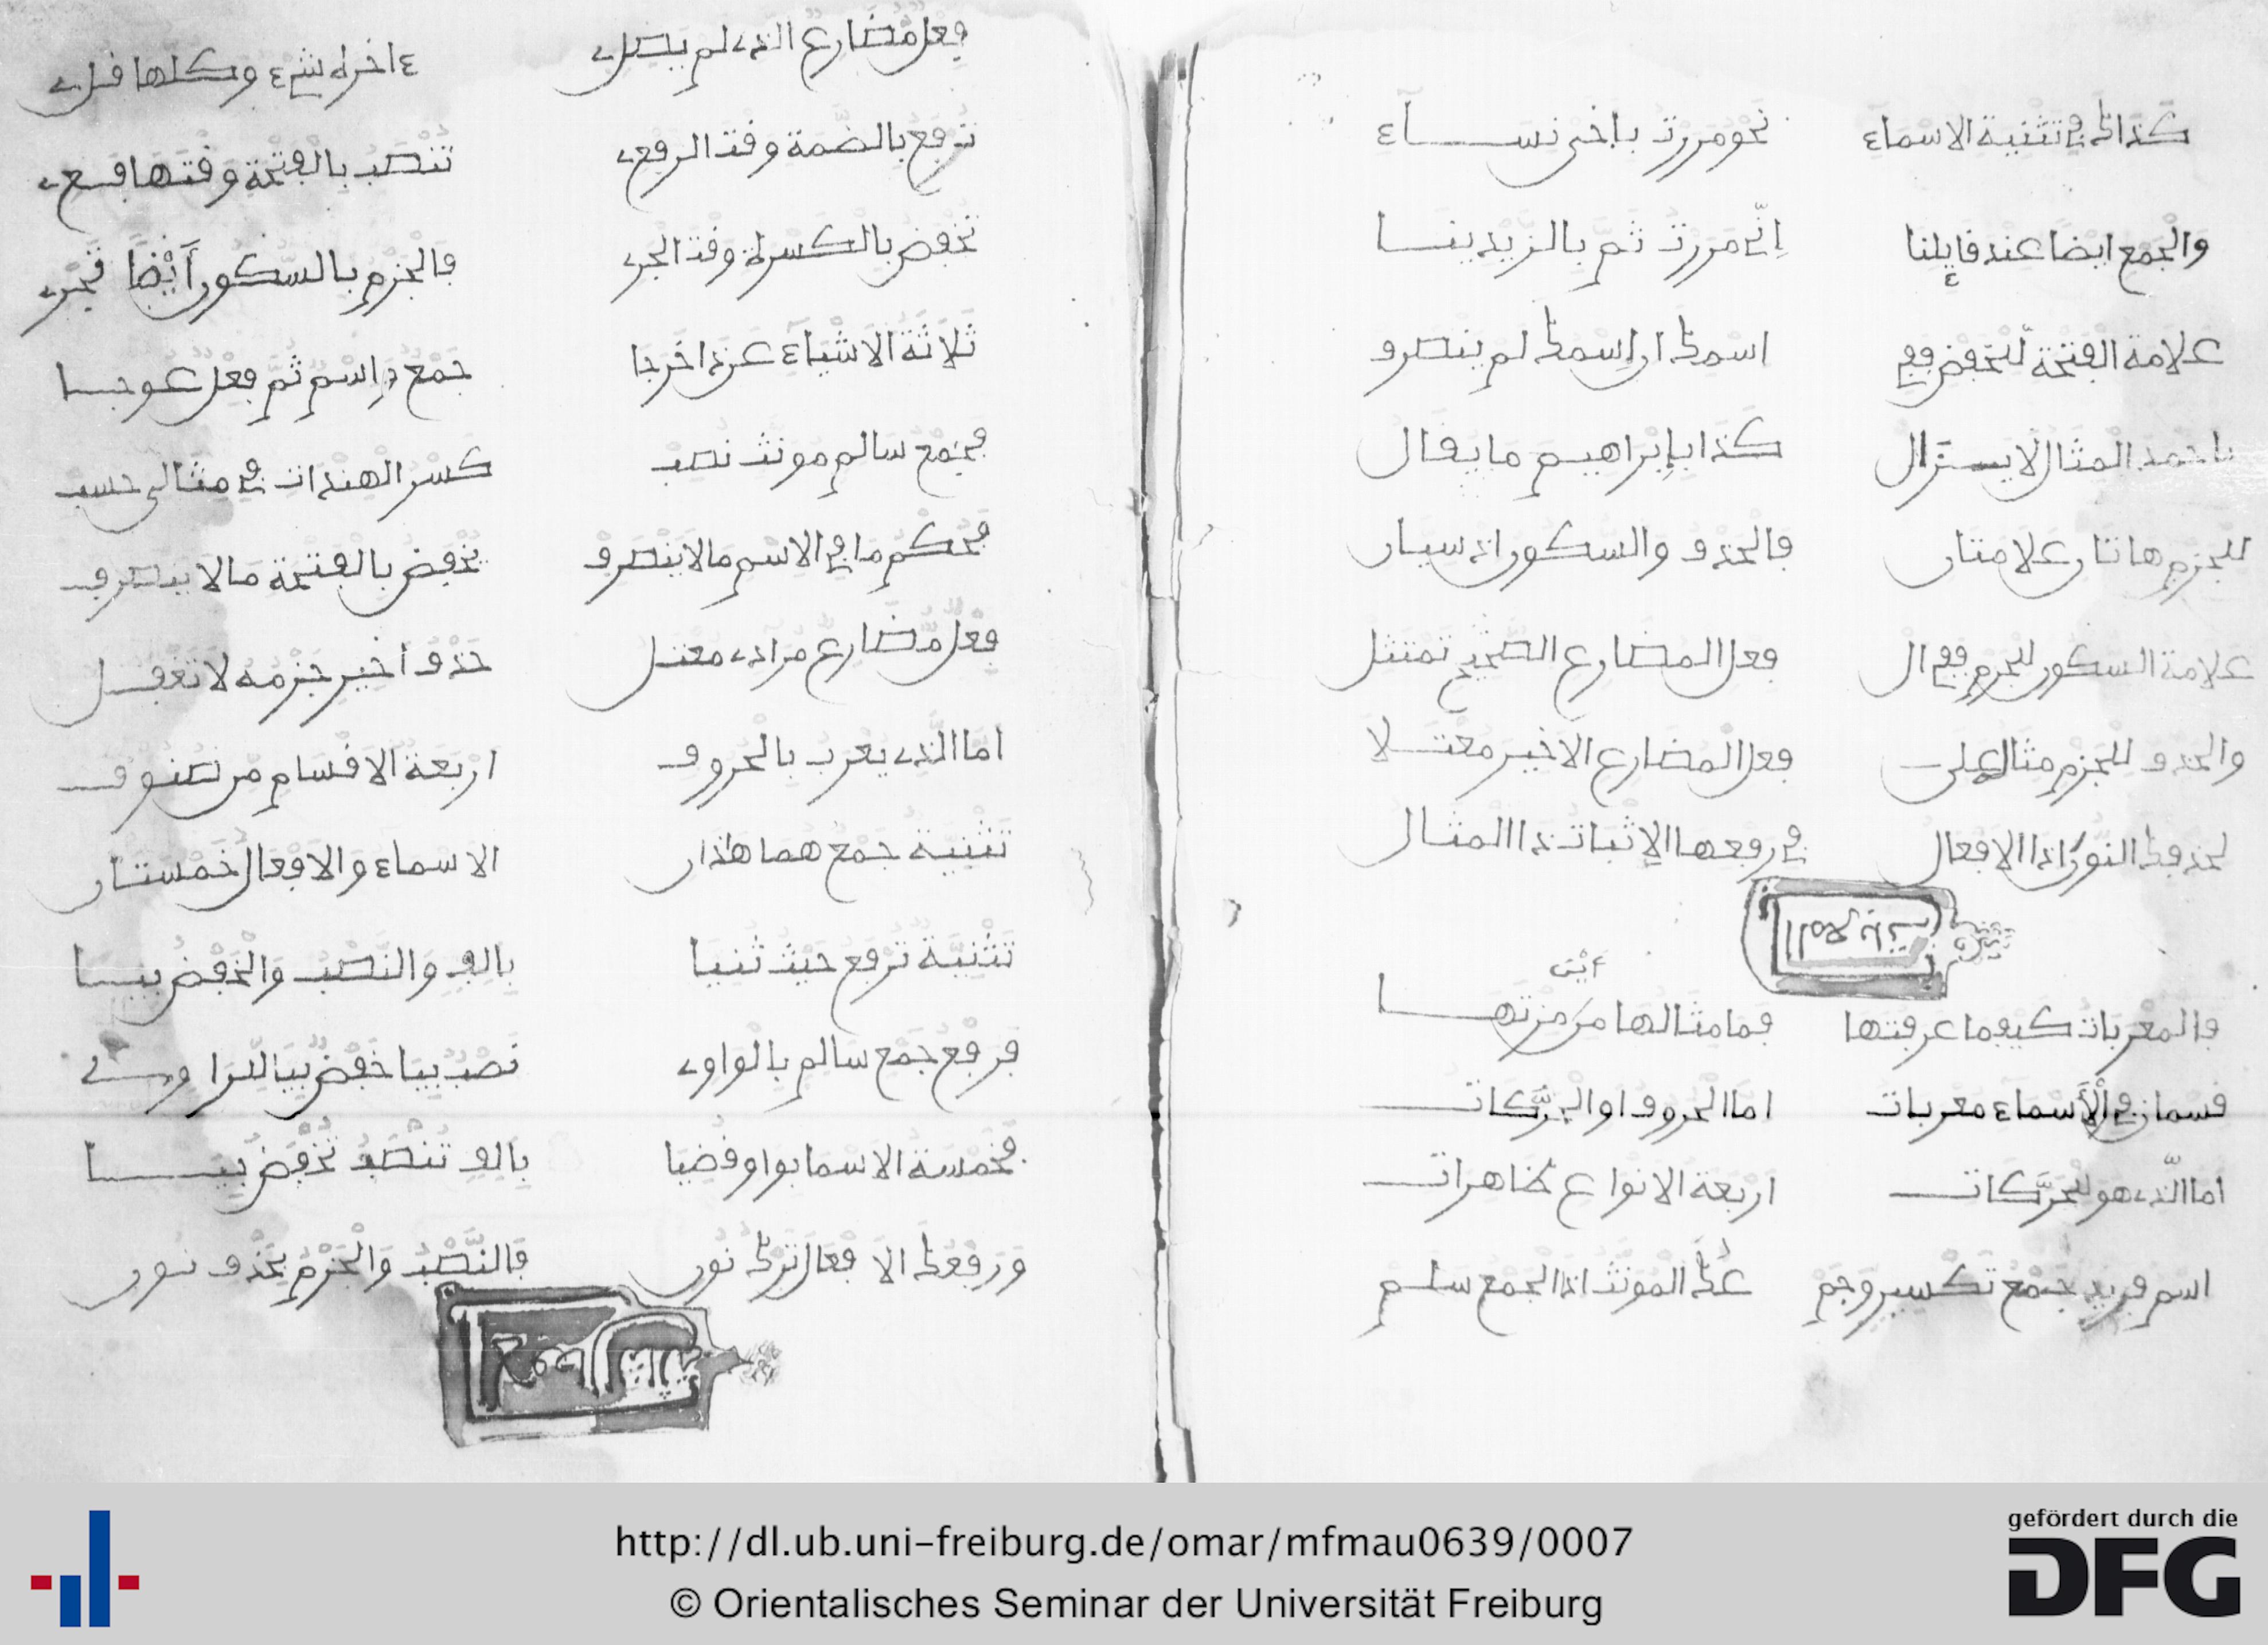 كذاك في تثنية الاسماء نحو مررت باختى نساء
والجمع ايضا عند قايلنا اني مررت ثم بالزيدينا
علامة الفتحة للخفض ففي اسمك ان اسمك لم ينصرف
باحمد المثال لا يستزال كذا بابراهيم ما يقال
للجزم هاتان علامتان فالحذف والسكون اذ سيان
علامة السكون للجزم ففي ال فعل المضارع الصحيح تمتثل
والحذف للجزم مثال على فعل المضارع الاخير معتلا
لحذفك النون اذا الافعال في رفعها الاثبات ذا المثال
فالمعربات كيفما عرفتها فما مثالها من مزتها
أين
قسمان في الأسماء معربات اما الحروف او الحركات
اما الذي هو للحركات اربعة الانواع ظاهرات
اسم فريد جمع تكسير وجم علك المونث اذا الجمع سلم
فعل مضارع الذي لم يصل ءاخره شيء وكلها قل
ترفع بالضمة وقت الرفع تنصب بالفتحة وقتها فع
تخفض بالكسرة وقت الجر فالجزم بالسكون أيضا فجر
ثلاثة الاشياء عن ذا خرجا جمع واسم ثم فعل عوجا
فجمع سالم مونث نصب كسر الهندات في مثالي حسب
فحكم ما في الاسم ما لا ينصرف يخفض بالفتحة ما لا ينصرف
فعل مضارع مراده معتل حذف أخير جزمه لا تغفل
اما الذي يعرب بالحروف اربعة الاقسام من صنوف
تثنية جمع هما هذان الاسماء والافعال خمستان
تثنية ترفع حيث ثنيا بالف والنصب والخفض بيا
فرفع جمع سالم بالواو نصب بيا خفض بيا للراو
فخمسة الاسما بواو قضيا بالف تنصب تخفض بيا
ورفعك الافعال ترك نون فالنصب والجزم بحذف نون
http://dl.ub.uni-freiburg.de/omar/mfmau0639/0007
© Orientalisches Seminar der Universität Freiburg
gefördert durch die
DFG